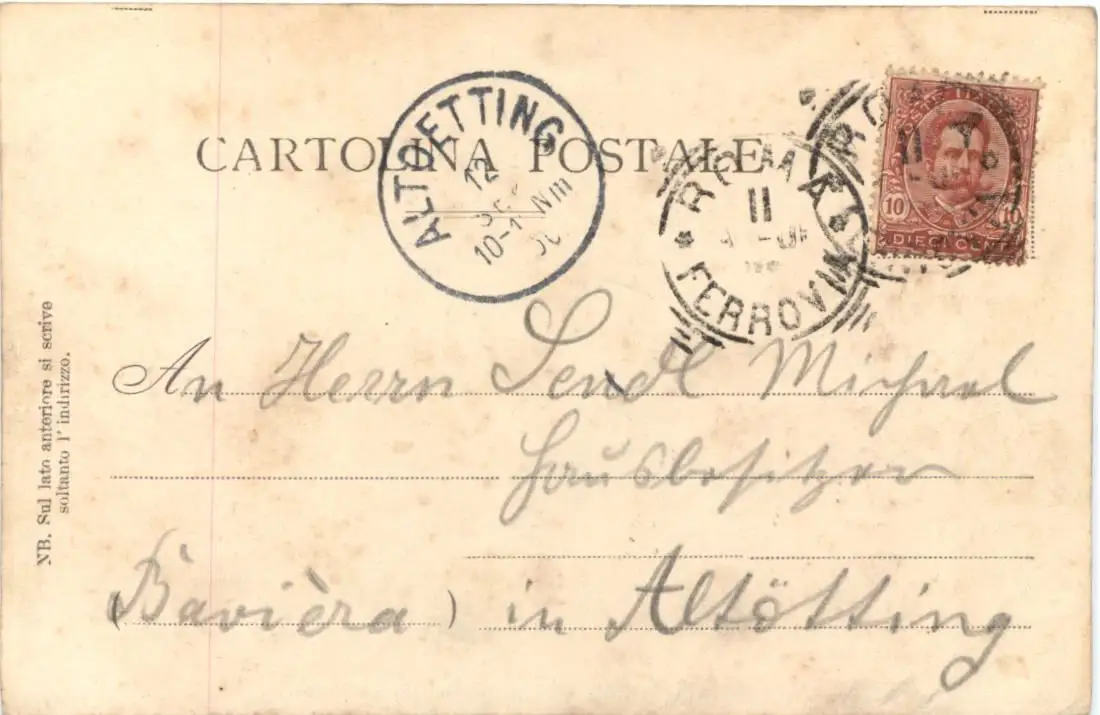 CARTOLINA POSTALE
ALTOETTING
12
ROMA
11
FERROVIA
ROMA
11
10 10
DIECI CENT
An Herrn Sendl Michael
Hausbesitzer
(Bavièra) in Altötting
NB. Sul lato anteriore si scrive
soltanto l' indirizzo.